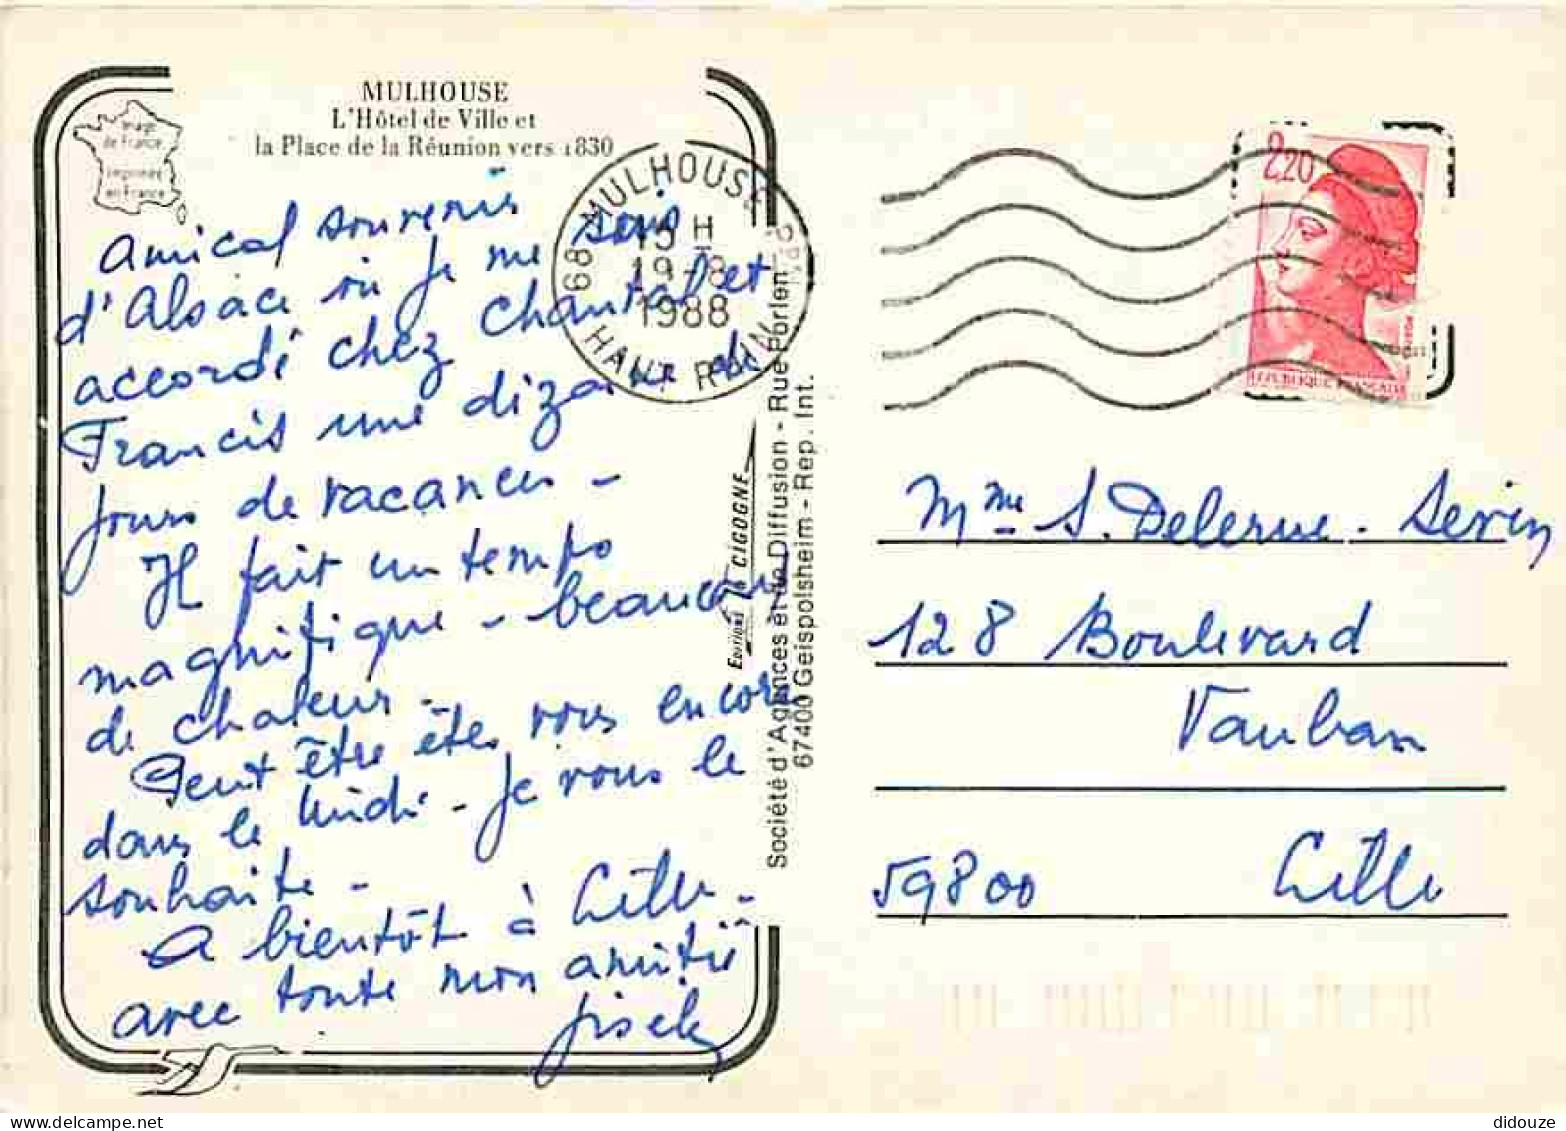 MULHOUSE
L'Hôtel de Ville et
la Place de la Réunion vers 1830
Image
de France
Imprimée
en France
Amical souvenir
d'Alsace où je me suis
accordé chez Chantal et
Francis une dizaine de
jours de vacances -
Il fait un temps
magnifique - beaucoup
de chaleur -
Peut être êtes vous encore
dans le Midi - Je vous le
souhaite -
A bientôt à Lille -
avec toute mon amitié
68 MULHOUSE
15 H
19-8
1988
HAUT RHIN
Editions La CIGOGNE
Société d'Agences et de Diffusion - Rue Forlen
67400 Geispolsheim - Rep. Int.
2,20
REPUBLIQUE FRANÇAISE
Mme S. Delerue - Sevin
128 Boulevard
Vauban
59800 Lille
didouze